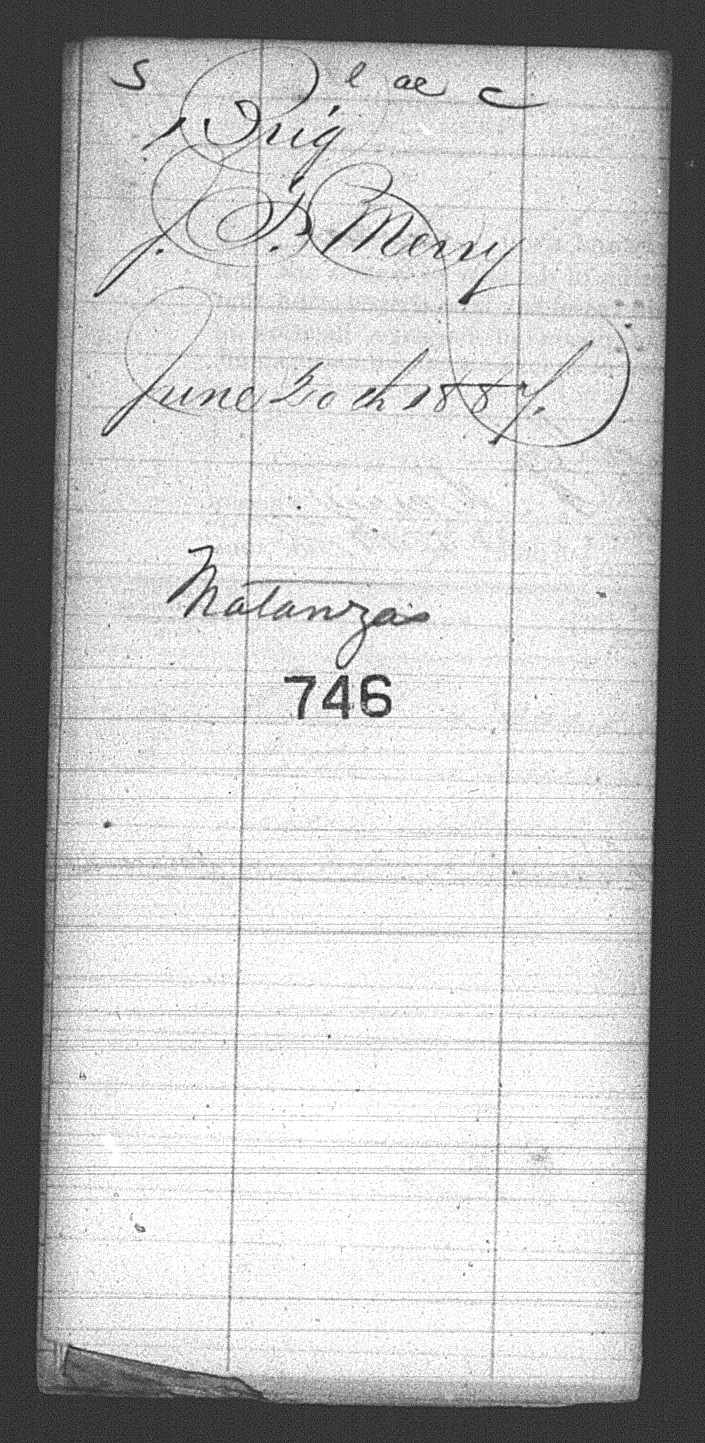 S l ae c
Brig
J. F. Merry
June 20th 1887.
Matanzas
746